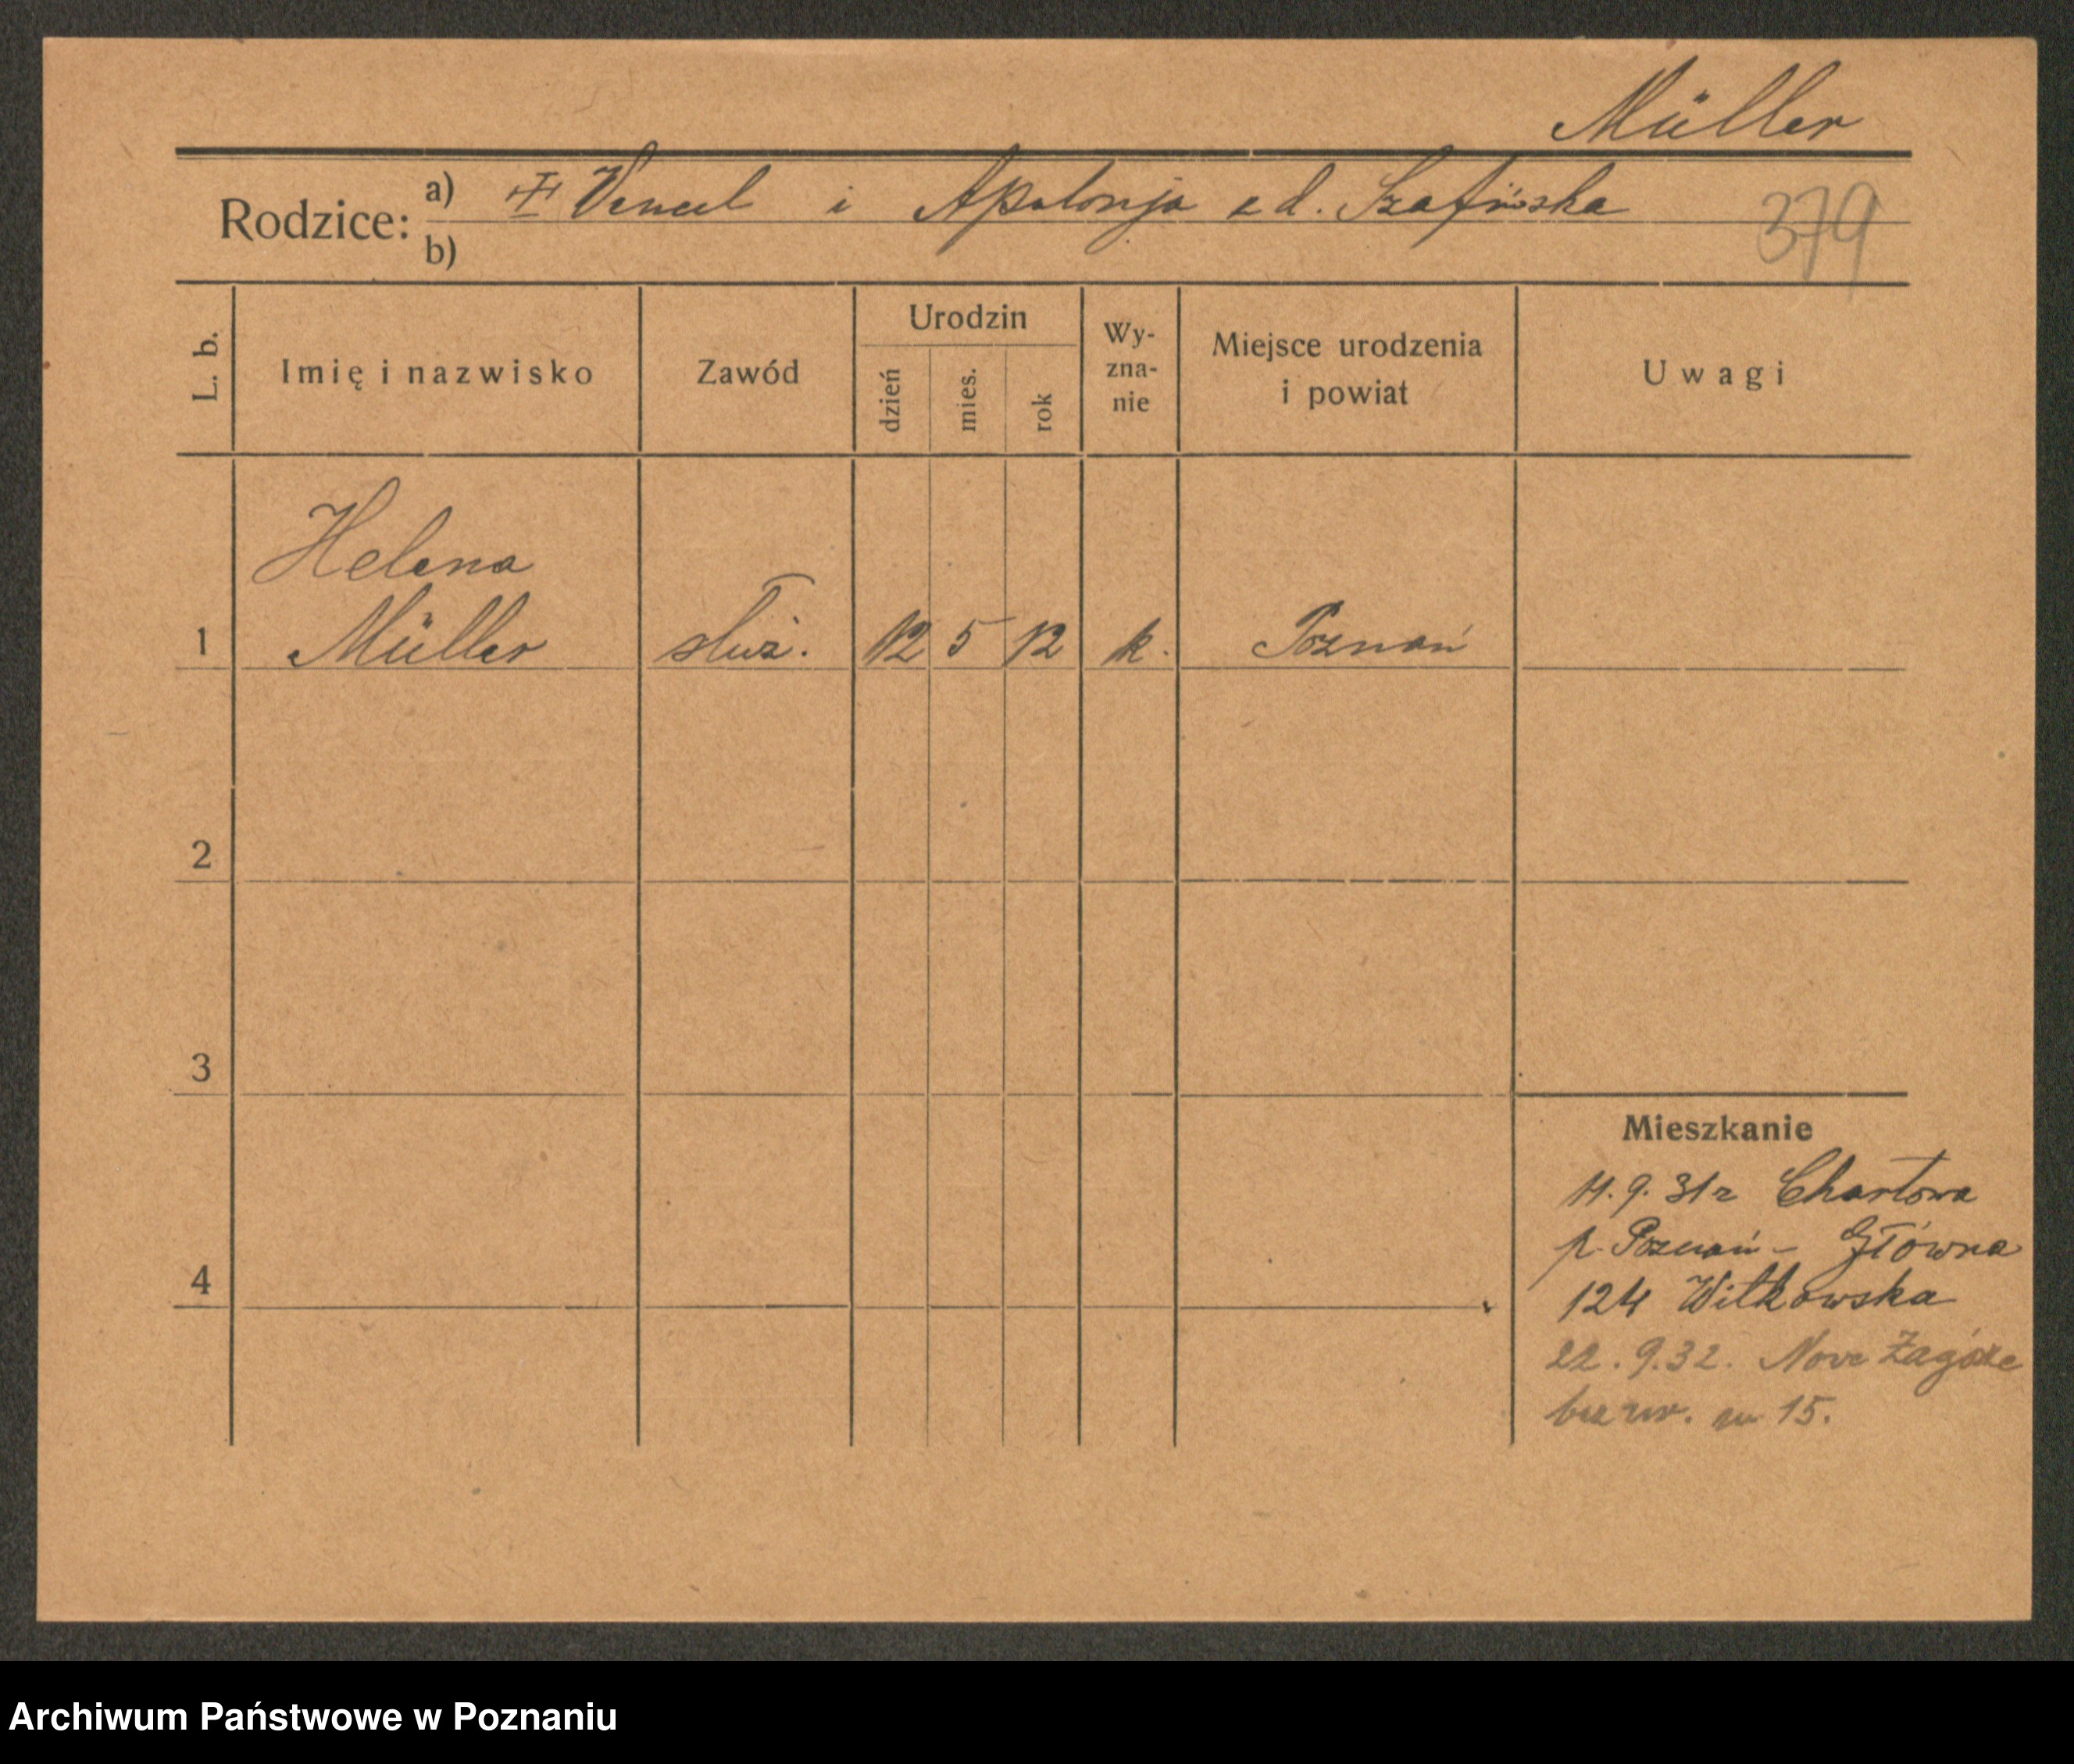 Müller
Rodzice: a) Vencel i Apolonja z d. Szafińska
379
b)
L. b.
Imię i nazwisko
Zawód
Urodzin
dzień
mies.
rok
Wy-
zna-
nie
Miejsce urodzenia
i powiat
Uwagi
Helena
1 Müller służ. 12 5 12 k. Poznań
2
3
4
Mieszkanie
11.9.31r Chartowa
p. Poznań - Główna
124 Witkowska
22.9.32. Nove Zagórze
15.
Archiwum Państwowe w Poznaniu